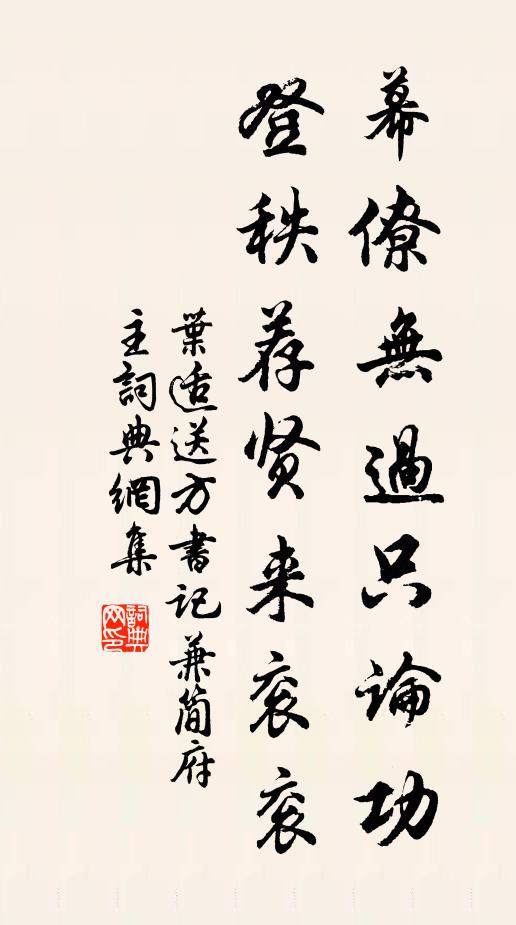 幕僚無過只論功
登秩荐贤来衮衮
葉適送方書記兼簡府
主詞典網集
詞典网印